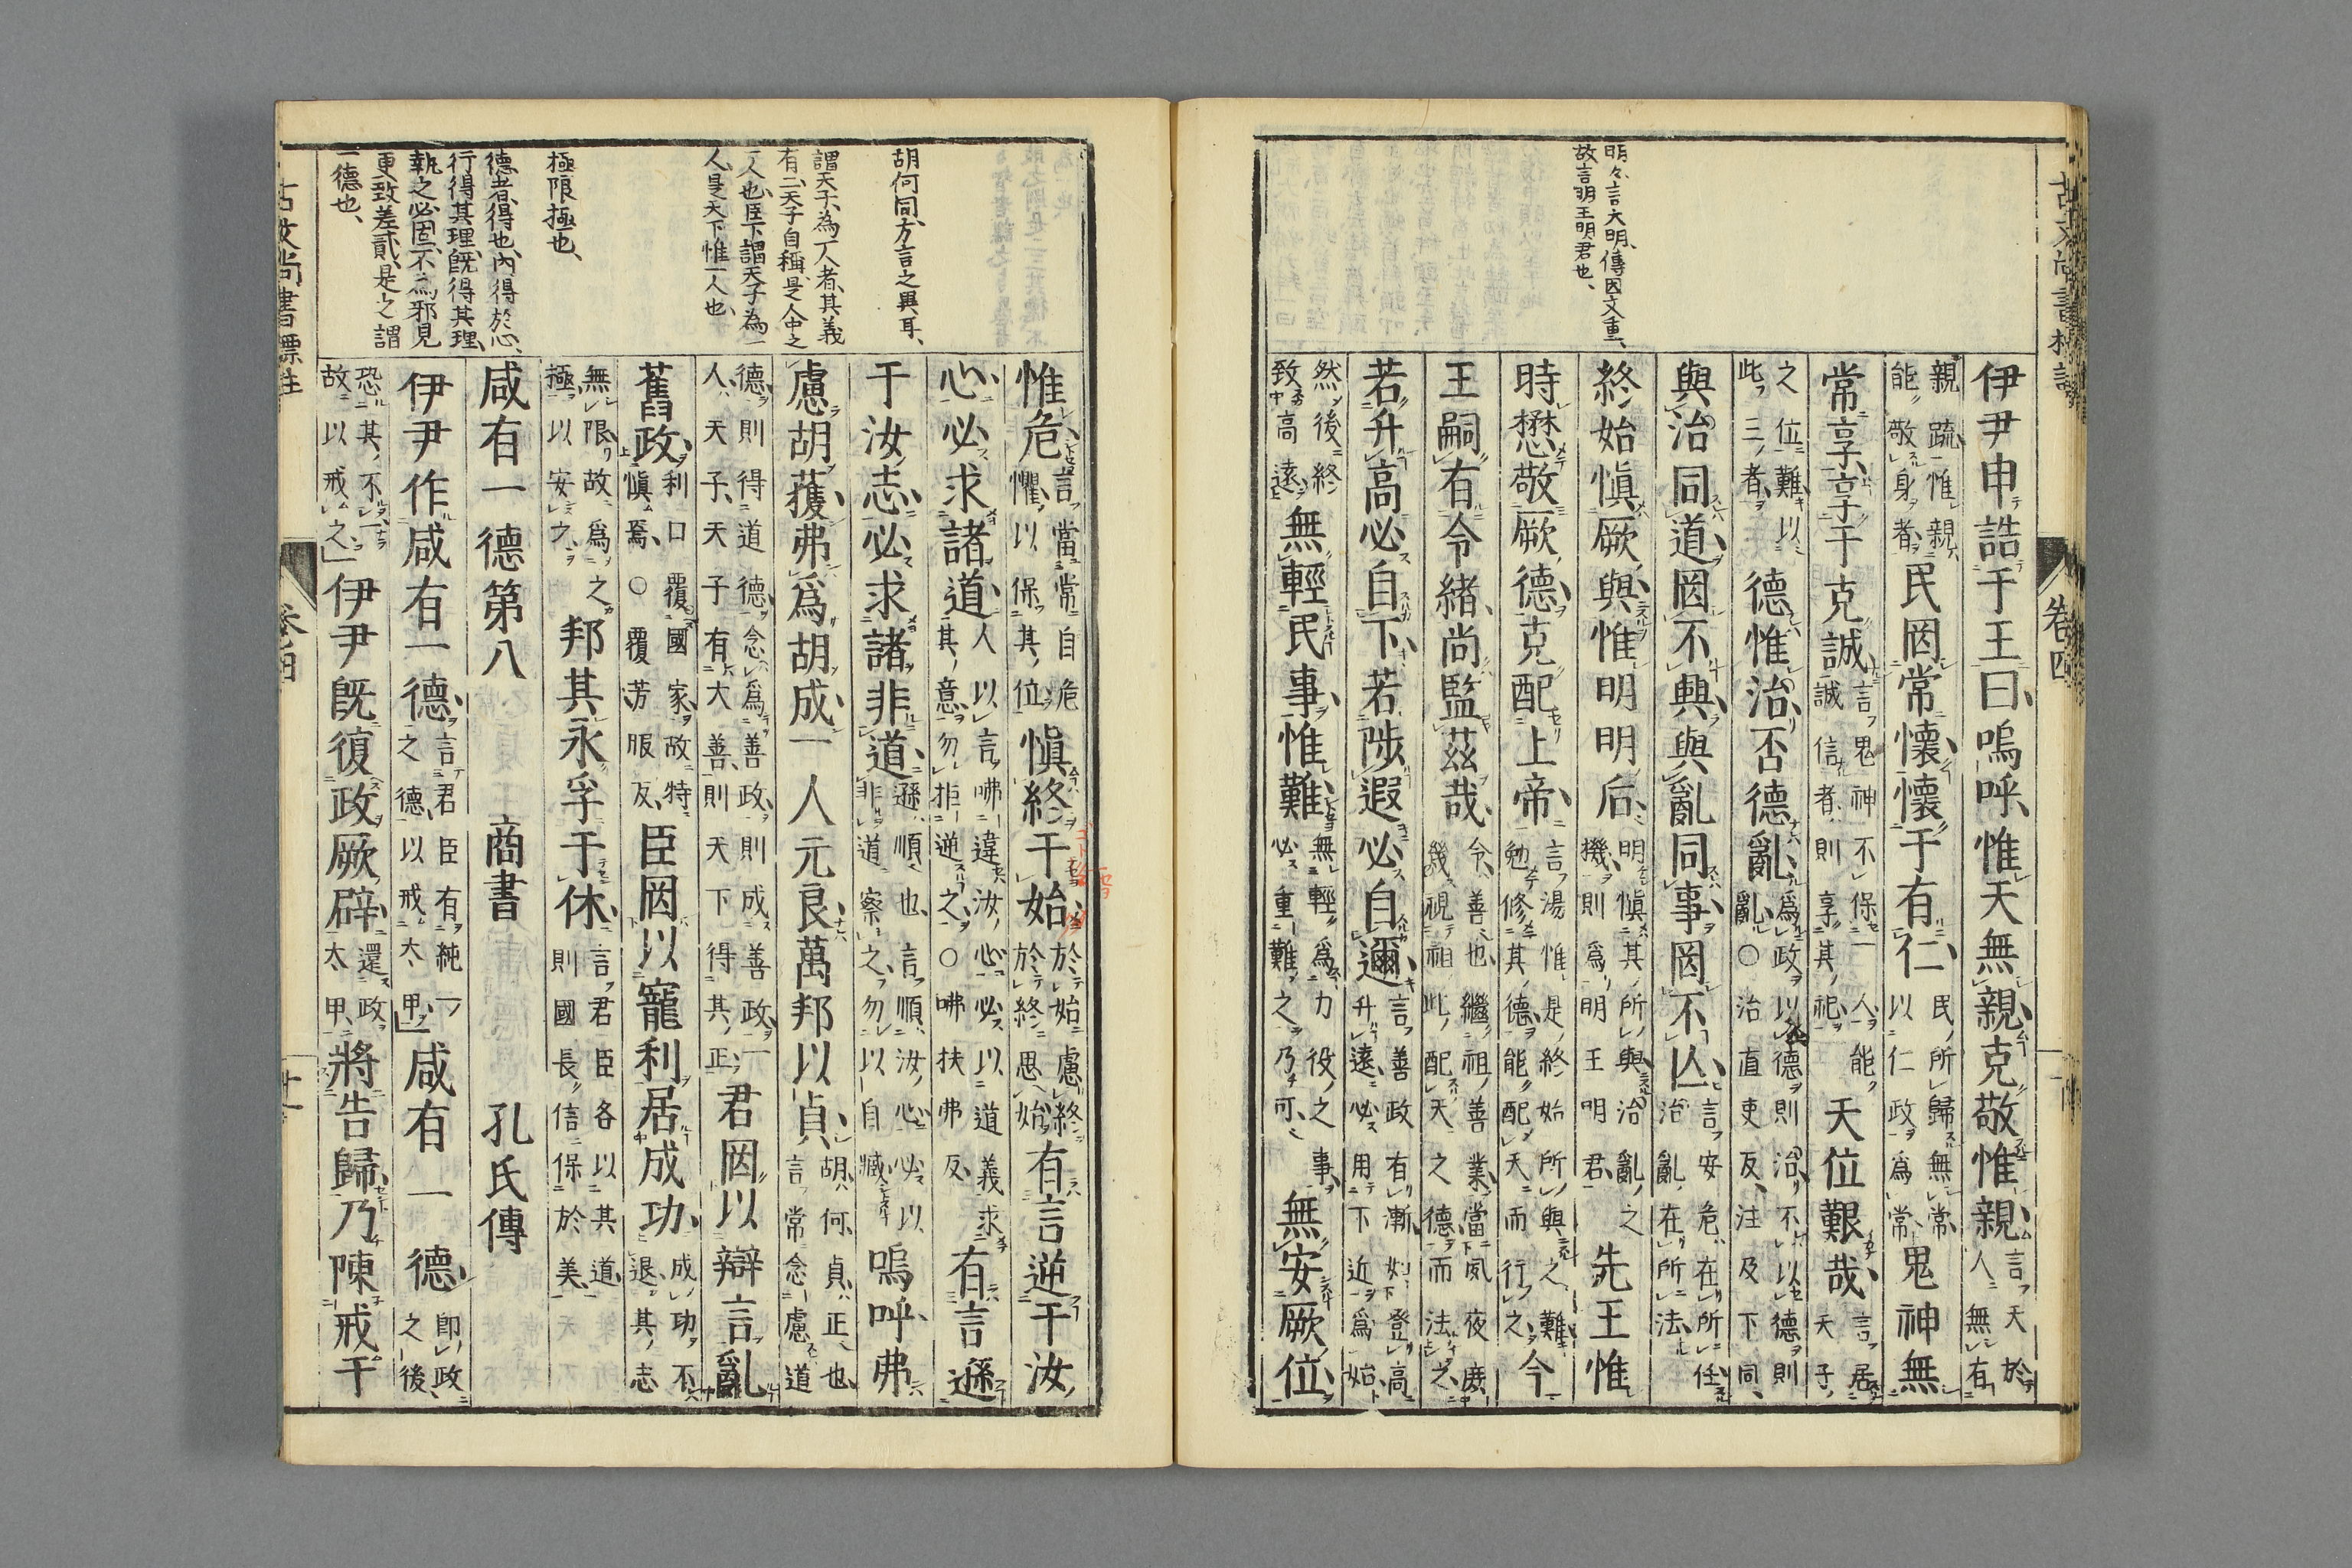 明々、言大明、傳因文重、
故言明王明君也、
伊尹申誥于王曰嗚呼惟天無親克敬惟親言天於人無有
親疏惟親能敬身者民罔常懷懷于有仁民所歸無常以仁政爲常鬼神無
常享享于克誠言鬼神不保一人能誠信者則享其祀天位艱哉言居天子
之位難以此三者德惟治否德亂爲政以德則治不以德則亂○治直吏反注及下同
與治同道罔不興與亂同事罔不亾言安危在所任治亂在所法
終始愼厥與惟明明后明愼其所與治亂之機則爲明王明君先王惟
時懋敬厥德克配上帝言湯惟是終始所與之難勉修其德能配天而行之今
王嗣有令緒尚監茲哉令善也繼祖善業當夙夜庶幾視祖此配天之德而法之
若升高必自下若陟遐必自邇言善政有漸如登高升遠必用下近爲始
然後終致高遠無輕民事惟難無輕爲力役之事必重難之乃可無安厥位
卷四
胡何同、方言之異耳、
謂天子、為一人者、其義
有二、天子自稱、是人中之
一人也、臣下謂天子為一
人、是天下惟一人也、
極限極也、
德者、得也、內得於心、
行得其理、既得其理、
執之必固、不為邪見
更致差貳、是之謂
一德也、
惟危言當常自危懼以保其位愼終于始於始慮終於終思始有言逆于汝
心必求諸道人以言咈違汝心必以道義求其意勿拒逆之○咈扶弗反有言遜
于汝志必求諸非道遜順也言順汝心必以非道察之勿以自臧嗚呼弗
慮胡獲弗爲胡成一人元良萬邦以貞胡何貞正也言常念慮道
德則得道德念爲善政則成善政一人天子天子有大善則天下得其正君罔以辯言亂
舊政利口覆國家故特愼焉○覆芳服反臣罔以寵利居成功成功不退其志
無限故爲之極以安之邦其永孚于休言君臣各以其道則國長信保於美
咸有一德第八 商書 孔氏傳
伊尹作咸有一德言君臣有純一之德以戒太甲咸有一德卽政之後
恐其不一故以戒之伊尹旣復政厥辟還政太甲將告歸乃陳戒于
古文尚書標註 卷四 十一